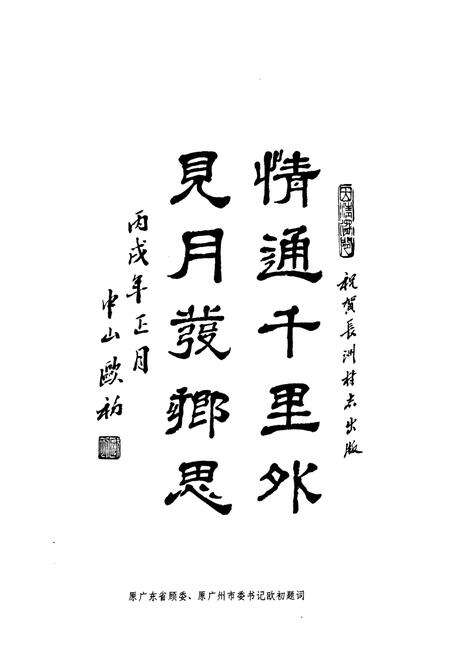 祝贺長洲村志出版
情通千里外
見月發鄉思
丙戌年正月
中山歐初
原广东省顾委、原广州市委书记欧初题词